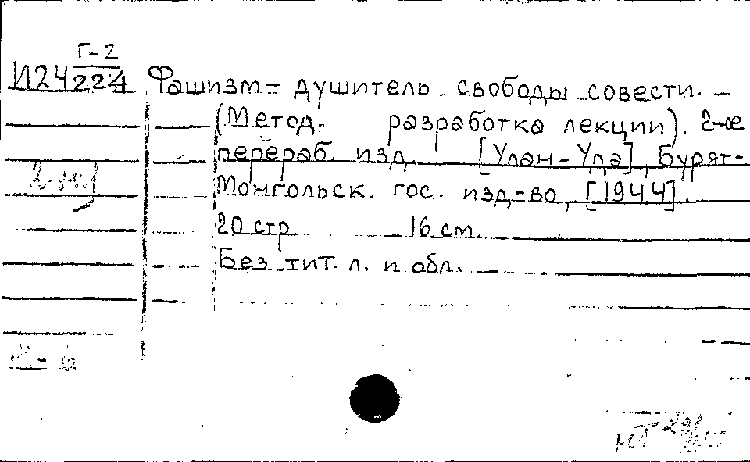 Г-2
И24224 Фашизм - душитель свободы совести. –
(Метод. разработка лекции). 2-ое
перераб. изд. [Улан-Удэ], Бурят-
Монгольск. гос. изд-во, [1944].
20 стр 16 см.
Без тит. л. и обл.